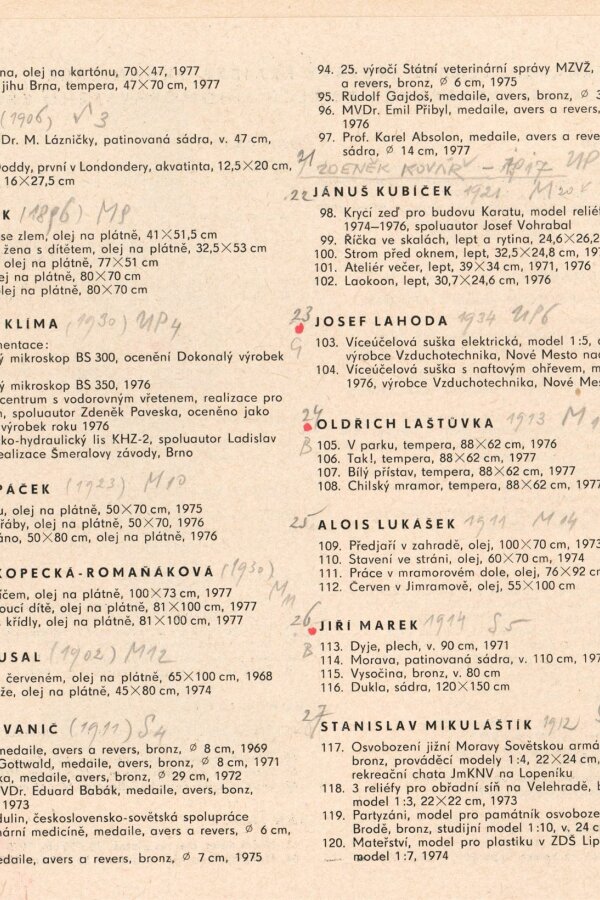 na, olej na kartónu, 70×47, 1977
jihu Brna, tempera, 47×70 cm, 1977
(1906) √3
Dr. M. Lázničky, patinovaná sádra, v. 47 cm,
Doddy, první v Londondery, akvatinta, 12,5×20 cm,
16×27,5 cm
K (1896) M9
se zlem, olej na plátně, 41×51,5 cm
žena s dítětem, olej na plátně, 32,5×53 cm
olej na plátně, 77×51 cm
ej na plátně, 80×70 cm
olej na plátně, 80×70 cm
KLÍMA (1930) UP4
mentace:
ý mikroskop BS 300, ocenění Dokonalý výrobek
ý mikroskop BS 350, 1976
centrum s vodorovným vřetenem, realizace pro
n, spoluautor Zdeněk Paveska, oceněno jako
výrobek roku 1976
ko-hydraulický lis KHZ-2, spoluautor Ladislav
ealizace Šmeralovy závody, Brno
PÁČEK (1923) M10
u, olej na plátně, 50×70 cm, 1975
řáby, olej na plátně, 50×70, 1976
áno, 50×80 cm, olej na plátně, 1976
KOPECKÁ-ROMAŇÁKOVÁ (1930)
M11
íčem, olej na plátně, 100×73 cm, 1977
oucí dítě, olej na plátně, 81×100 cm, 1977
křídly, olej na plátně, 81×100 cm, 1977
USAL (1902) M12
červeném, olej na plátně, 65×100 cm, 1968
že, olej na plátně, 45×80 cm, 1974
VANIČ (1911) S4
medaile, avers a revers, bronz, ∅ 8 cm, 1969
Gottwald, medaile, avers, bronz, ∅ 8 cm, 1971
ka, medaile, avers, bronz, ∅ 29 cm, 1972
MVDr. Eduard Babák, medaile, avers, bonz,
1973
dulin, československo-sovětská spolupráce
nární medicině, medaile, avers a revers, ∅ 6 cm,
edaile, avers a revers, bronz, ∅ 7 cm, 1975
94. 25. výročí Státní veterinární správy MZVŽ,
a revers, bronz, ∅ 6 cm, 1975
95. Rudolf Gajdoš, medaile, avers, bronz, ∅
96. MVDr. Emil Přibyl, medaile, avers a revers,
1976
97. Prof. Karel Absolon, medaile, avers a reve
sádra, ∅ 14 cm, 1977
21 ZDENĚK KOVÁŘ – UP
22 JÁNUŠ KUBÍČEK 1921
98. Krycí zeď pro budovu Karatu, model relié
1974–1976, spoluautor Josef Vohrabal
99. Říčka ve skalách, lept a rytina, 24,6×26,2
100. Strom před oknem, lept, 32,5×24,8 cm, 197
101. Ateliér večer, lept, 39×34 cm, 1971, 1976
102. Laokoon, lept, 30,7×24,6 cm, 1976
23 JOSEF LAHODA 1934 UP6
G
103. Víceúčelová suška elektrická, model 1:5,
výrobce Vzduchotechnika, Nové Mesto na
104. Víceúčelová suška s naftovým ohřevem, m
1976, výrobce Vzduchotechnika, Nové Mes
24 OLDŘICH LAŠTŮVKA 1913 M
B
105. V parku, tempera, 88×62 cm, 1976
106. Tak!, tempera, 88×62 cm, 1977
107. Bílý přístav, tempera, 88×62 cm, 1977
108. Chilský mramor, tempera, 88×62 cm, 1977
25 ALOIS LUKÁŠEK 1911 M14
109. Předjaří v zahradě, olej, 100×70 cm, 1973
110. Stavení ve stráni, olej, 60×70 cm, 1974
111. Práce v mramorovém dole, olej, 76×92 c
112. Červen v Jimramově, olej, 55×100 cm
26 JIŘÍ MAREK 1914 S5
B
113. Dyje, plech, v. 90 cm, 1971
114. Morava, patinovaná sádra, v. 110 cm, 197
115. Vysočina, bronz, v. 80 cm
116. Dukla, sádra, 120×150 cm
27 STANISLAV MIKULÁŠTÍK 1912 S
117. Osvobození jižní Moravy Sovětskou armá
bronz, prováděcí modely 1:4, 22×24 cm,
rekreační chata JmKNV na Lopeníku
118. 3 reliéfy pro obřadní síň na Velehradě, b
model 1:3, 22×22 cm, 1973
119. Partyzáni, model pro památník osvoboze
Brodě, bronz, studijní model 1:10, v. 24 c
120. Mateřství, model pro plastiku v ZDŠ Lip
model 1:7, 1974